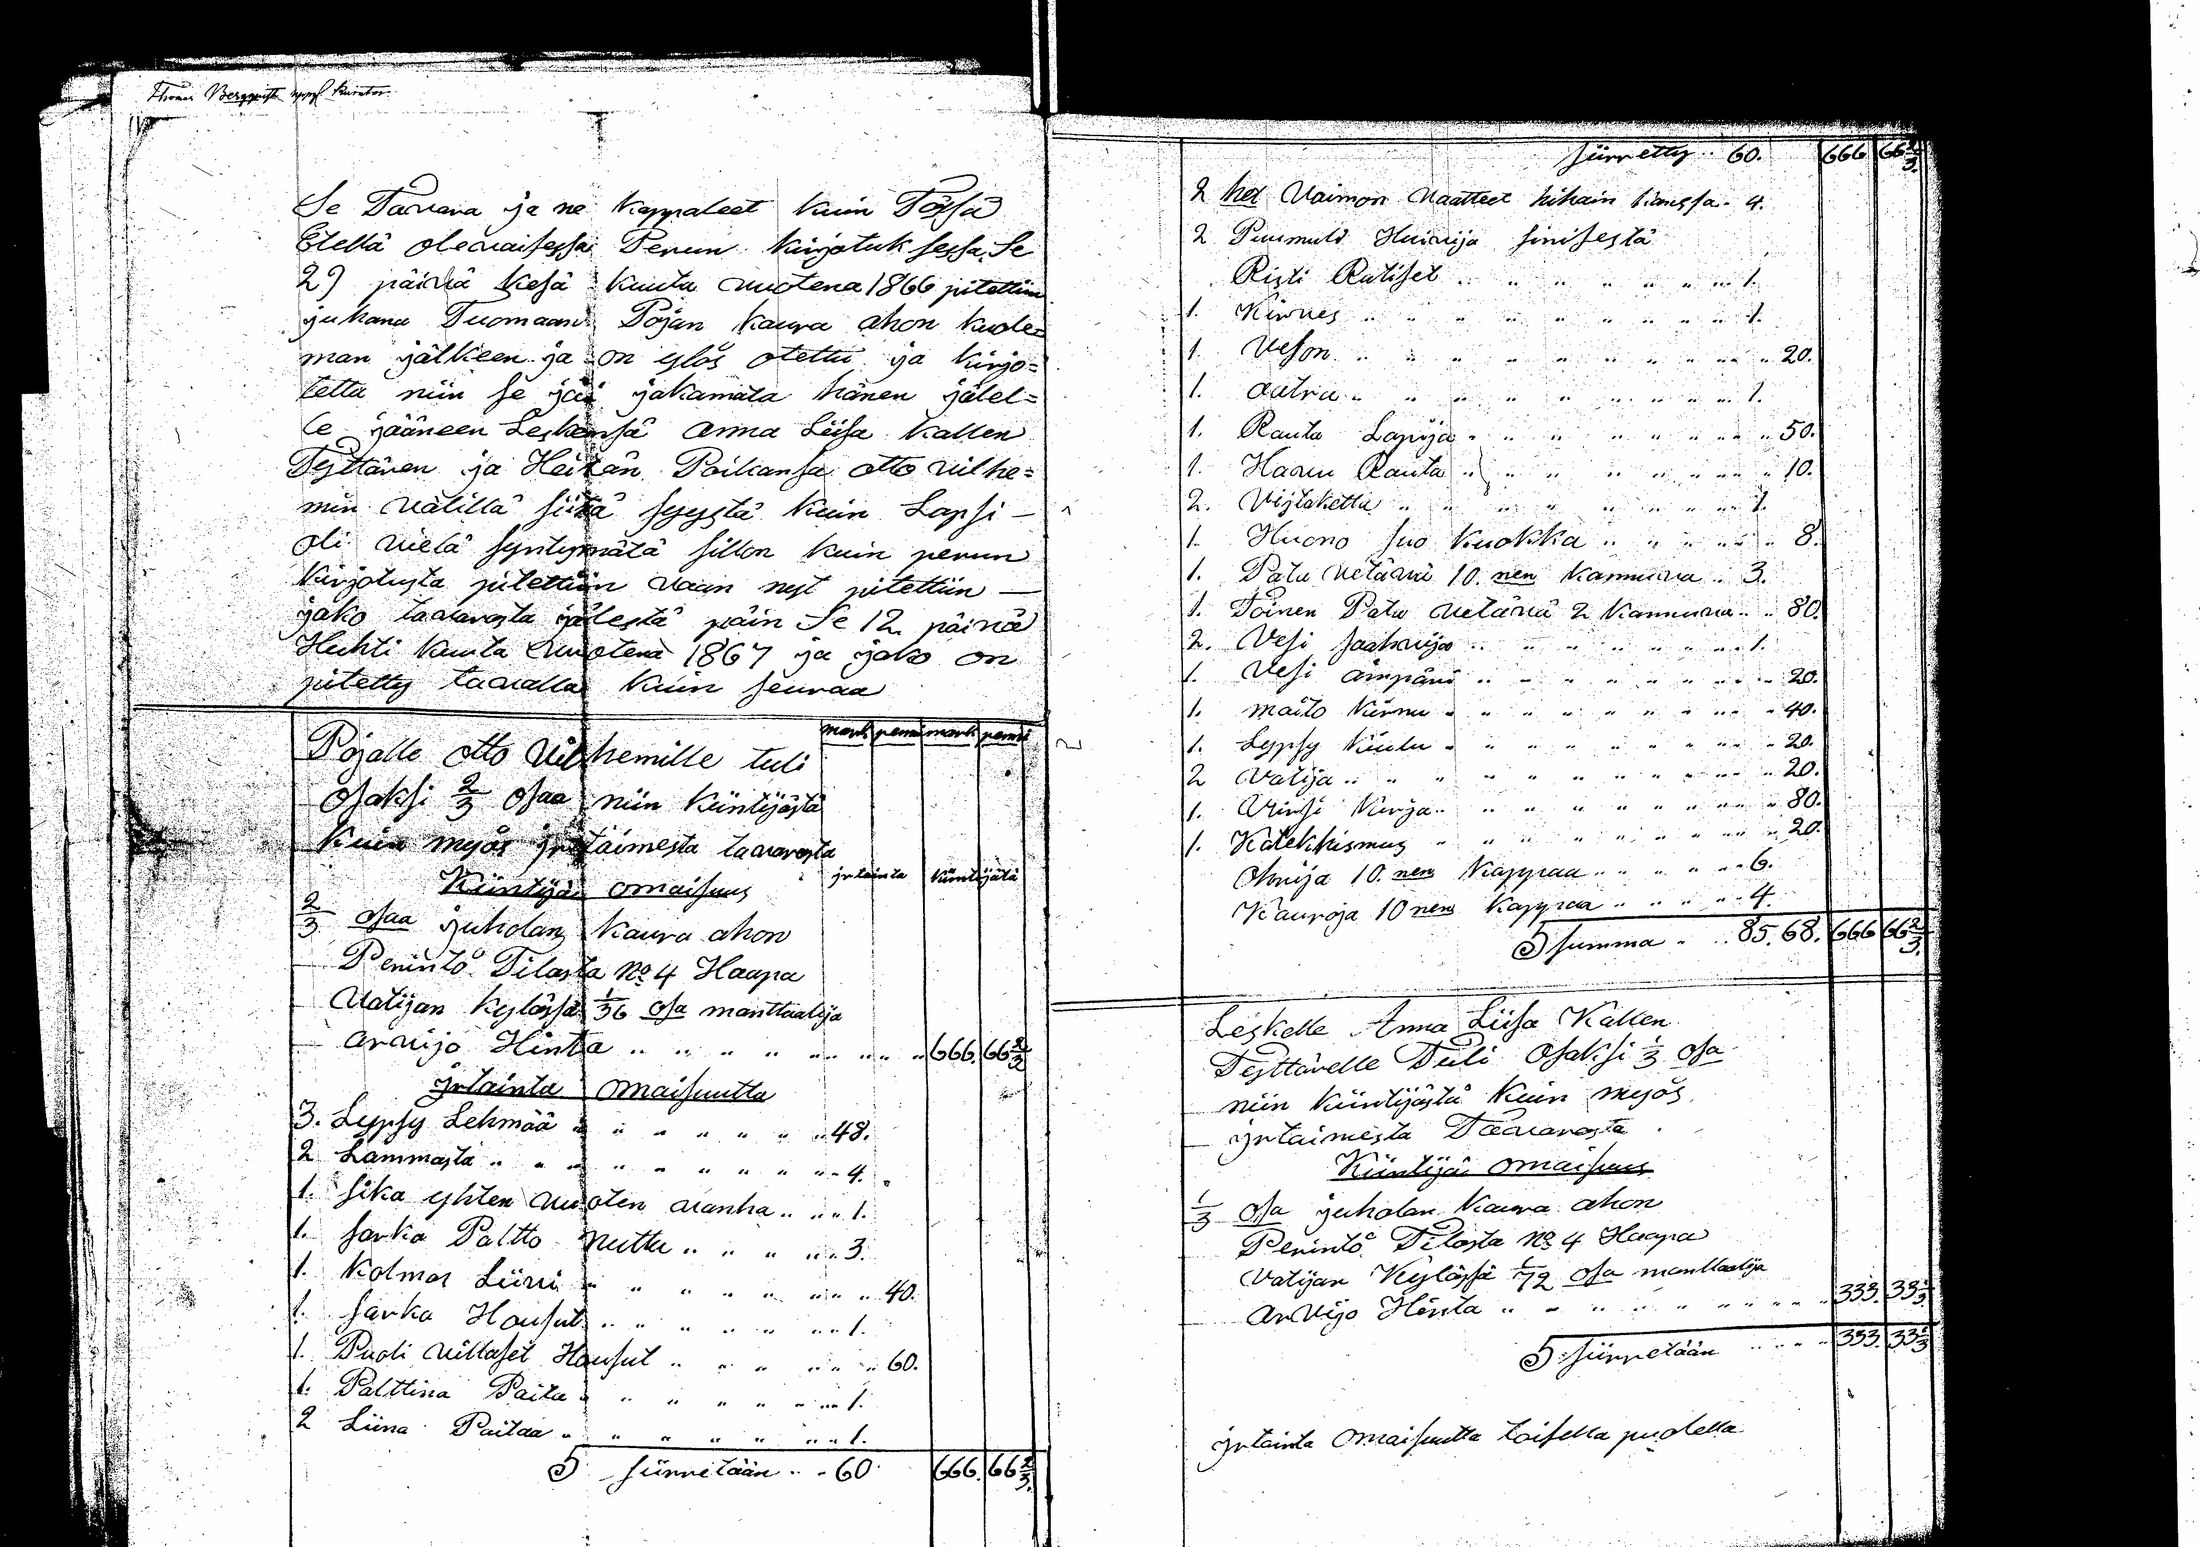 Thomas Bergqvist uppsf Kurator
Se Tavara ja ne kappaleet kuin Tässä
Edellä olevaisessa Perun kirjotuksessa, Se
29 päivä kesä kuuta vuotena 1866 pitettiin
juhana Tuomaan Pojan kaura ahon kuole=
man jälkeen ja on ylös otettu ja kirjo=
tettu niin se jäi jakamata hänen jälel=
le jääneen Leskensä Anna Liisa kallen
Tyttären ja Heitän Poikansa otto vilhe=
min välillä siitä syystä kuin Lapsi –
oli vielä syntymätä sillon kuin perun
kirjotusta pitettiin vaan nyt pitettiin –
jako taavarasta jälestä päin Se 12. päivä
Huhti kuuta vuotena 1867 ja jako on
pitetty tavalla kuin seuraa
mark penni mark penni
Pojalle otto vilhemille tuli
osaksi 2/3 osaa niin kiintijästä
kuin myös irtaimesta taavarasta
irtainta kiintijätä
Kiintijä omaisuus
2/3 osaa juholan kaura ahon
Perintö Tilasta No 4 Haapa
Vatijan kylässä 1/36 osa manttaalija
arvijo Hinta 666. 66 2/3
irtainta omaisuutta
3. Lypsy Lehmää 48.
2 Lammasta 4.
1. sika yhten vuoten vanha 1.
1. sarka Paltto nuttu 3.
1. Kolmas Liivi 40.
1. sarka Housut 1.
1. Puoli villaset Housut 60.
1. Palttina Paita 1.
2 Liina Paitaa 1.
S siirretään 60 666. 66 2/3
siirretty 60. 666 66 2/3
2 het Vaimon vaatteet hihain kanssa 4.
2 Puumuld Huivija sinisestä
Risti Rutiset 1.
1. Kirves 1.
1. Veson 20.
1. aatra 1.
1. Rauta Lapija 50.
1. Haru Rauta 10.
2. Vijtakettu 1.
1. Huono suo kuokka 8.
1. Pata vetävä 10. nen kannuva 3.
1. Toinen Pata vetävä 2 kannuva 80.
2. Vesi saahvija 1.
1. Vesi ämpäri 20.
1. maito kirnu 40.
1. Lypsy kiulu 20.
2 Vatija 20.
1. Virsi kirja 80.
1. Katekhismus 20.
Ohrija 10. nen kappaa 6.
Kauroja 10 nen kappaa 4.
S summa 85. 68. 666 66 2/3
Leskelle Anna Liisa Kallen
Tyttärelle Tuli osaksi 1/3 osa
niin kiintijästä kuin myös
irtaimesta Taavarasta
Kiintijä omaisuus
1/3 osa juholan kaura ahon
Perintö Tilasta No 4 Haapa
Vatijan Kylässä 1/72 osa manttaalija
arvijo Hinta 333. 33 1/3
S siirretään 333. 33 1/3
irtainta omaisuutta toisella puolella